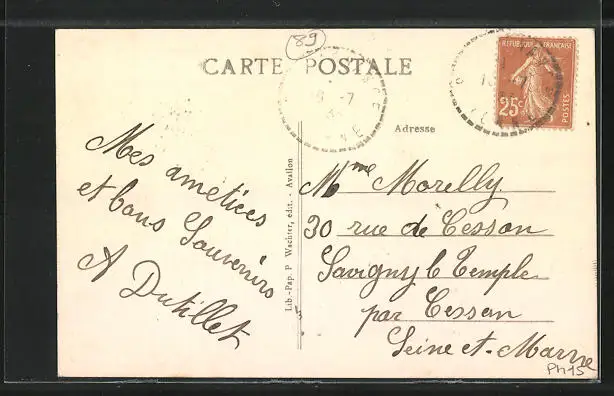 89
CARTE POSTALE
REPUBLIQUE FRANÇAISE
25c
POSTES
Adresse
Mes ametices
et bons Souvenirs
A Dutillet
Lib.-Pap. P Wachter, édit. - Avallon
Mme Morelly
30 rue de Cesson
Savigny le Temple
par Cesson
Seine et-Marne
Ph15